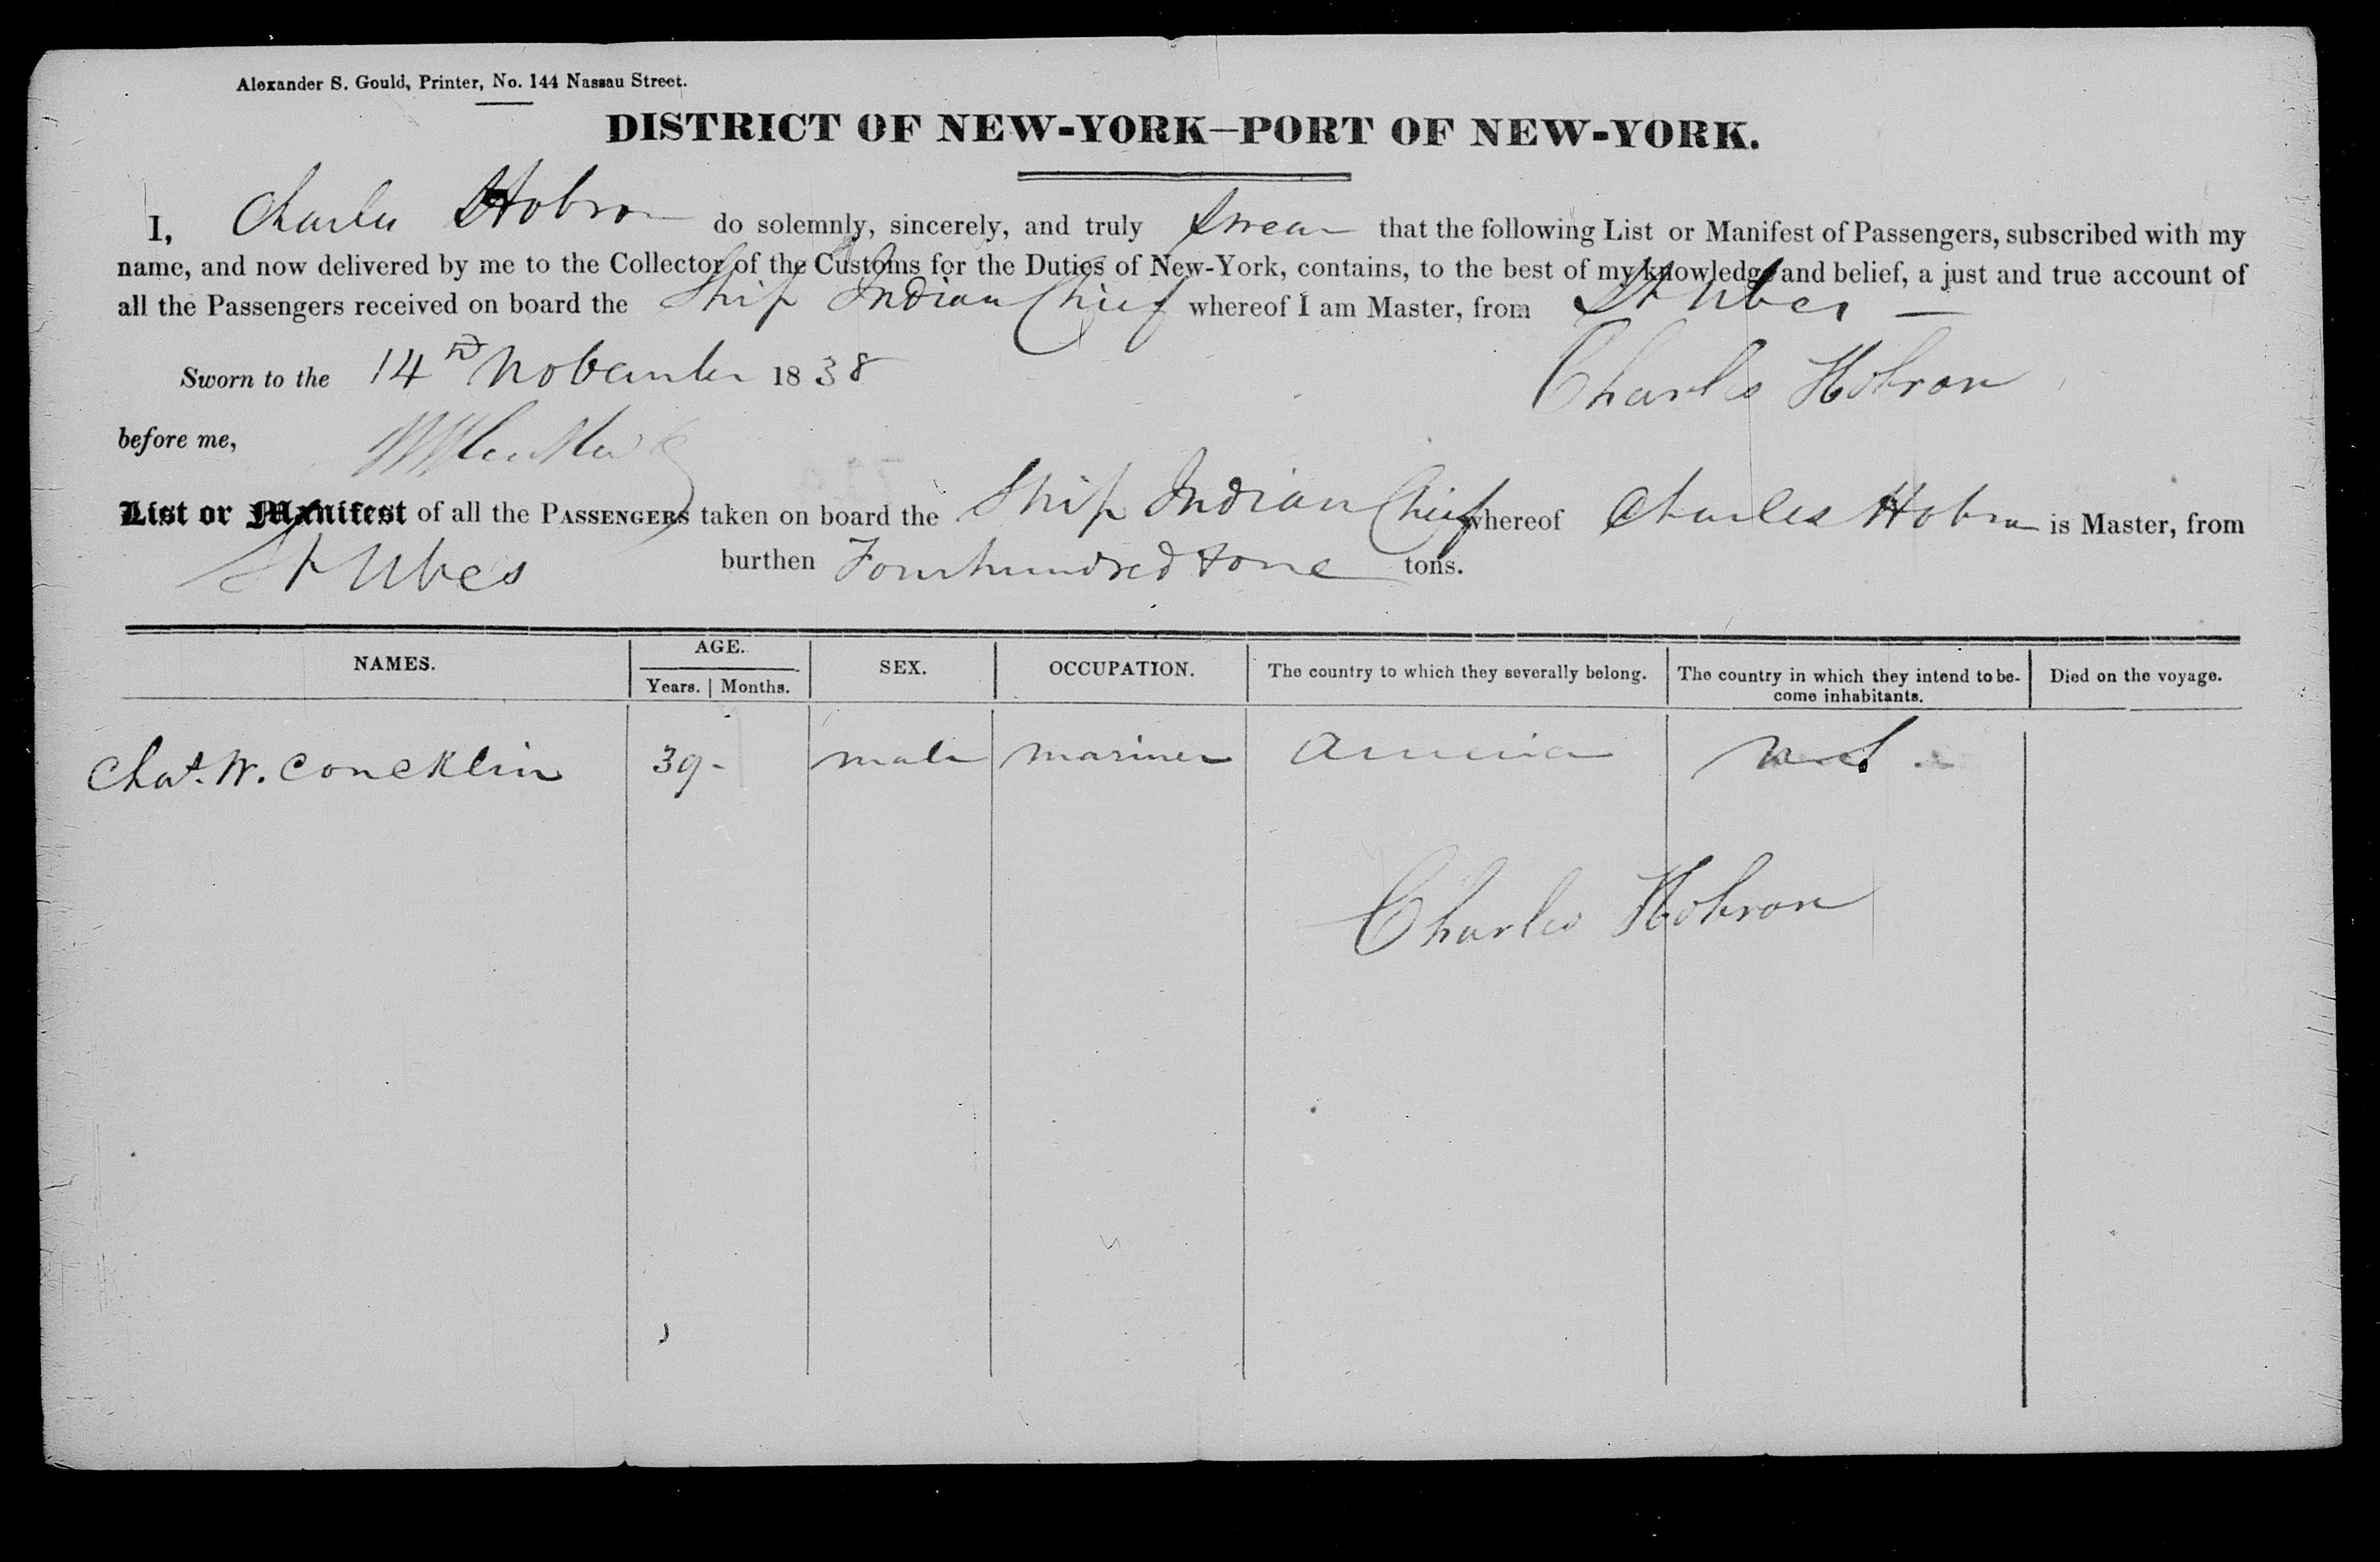 Alexander S. Gould, Printer, No. 144 Nassau Street.
DISTRICT OF NEW-YORK—PORT OF NEW-YORK.
I, Charles Hobron do solemnly, sincerely, and truly Swear that the following List or Manifest of Passengers, subscribed with my
name, and now delivered by me to the Collector of the Customs for the Duties of New-York, contains, to the best of my knowledge and belief, a just and true account of
all the Passengers received on board the Ship Indian Chief whereof I am Master, from St Ubes —
Sworn to the 14th November 1838
Charles Hobron
before me,
List or Manifest of all the PASSENGERS taken on board the Ship Indian Chief whereof Charles Hobron is Master, from
St Ubes burthen Four hundred & one tons.
NAMES. AGE. SEX. OCCUPATION. The country to which they severally belong. The country in which they intend to be- Died on the voyage.
Years. Months. come inhabitants.
Chas. W. Concklin 39- male mariner America
Charles Hobron